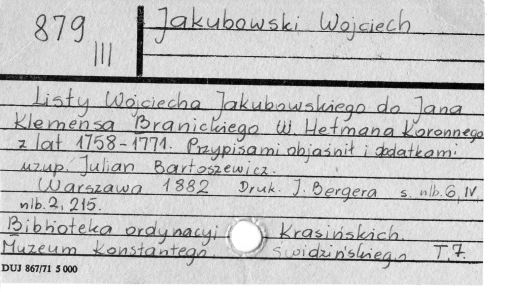 879
III
Jakubowski Wojciech
Listy Wojciecha Jakubowskiego do Jana
Klemensa Branickiego W. Hetmana Koronnego
z lat 1758-1771. Przypisami objaśnił i dodatkami
uzup. Julian Bartoszewicz.
Warszawa 1882 Druk. J. Bergera s. nlb. 6, IV,
nlb. 2, 215.
Biblioteka ordynacyi Krasińskich.
Muzeum Konstantego Świdzińskiego T. 7.
DUJ 867/71 5 000